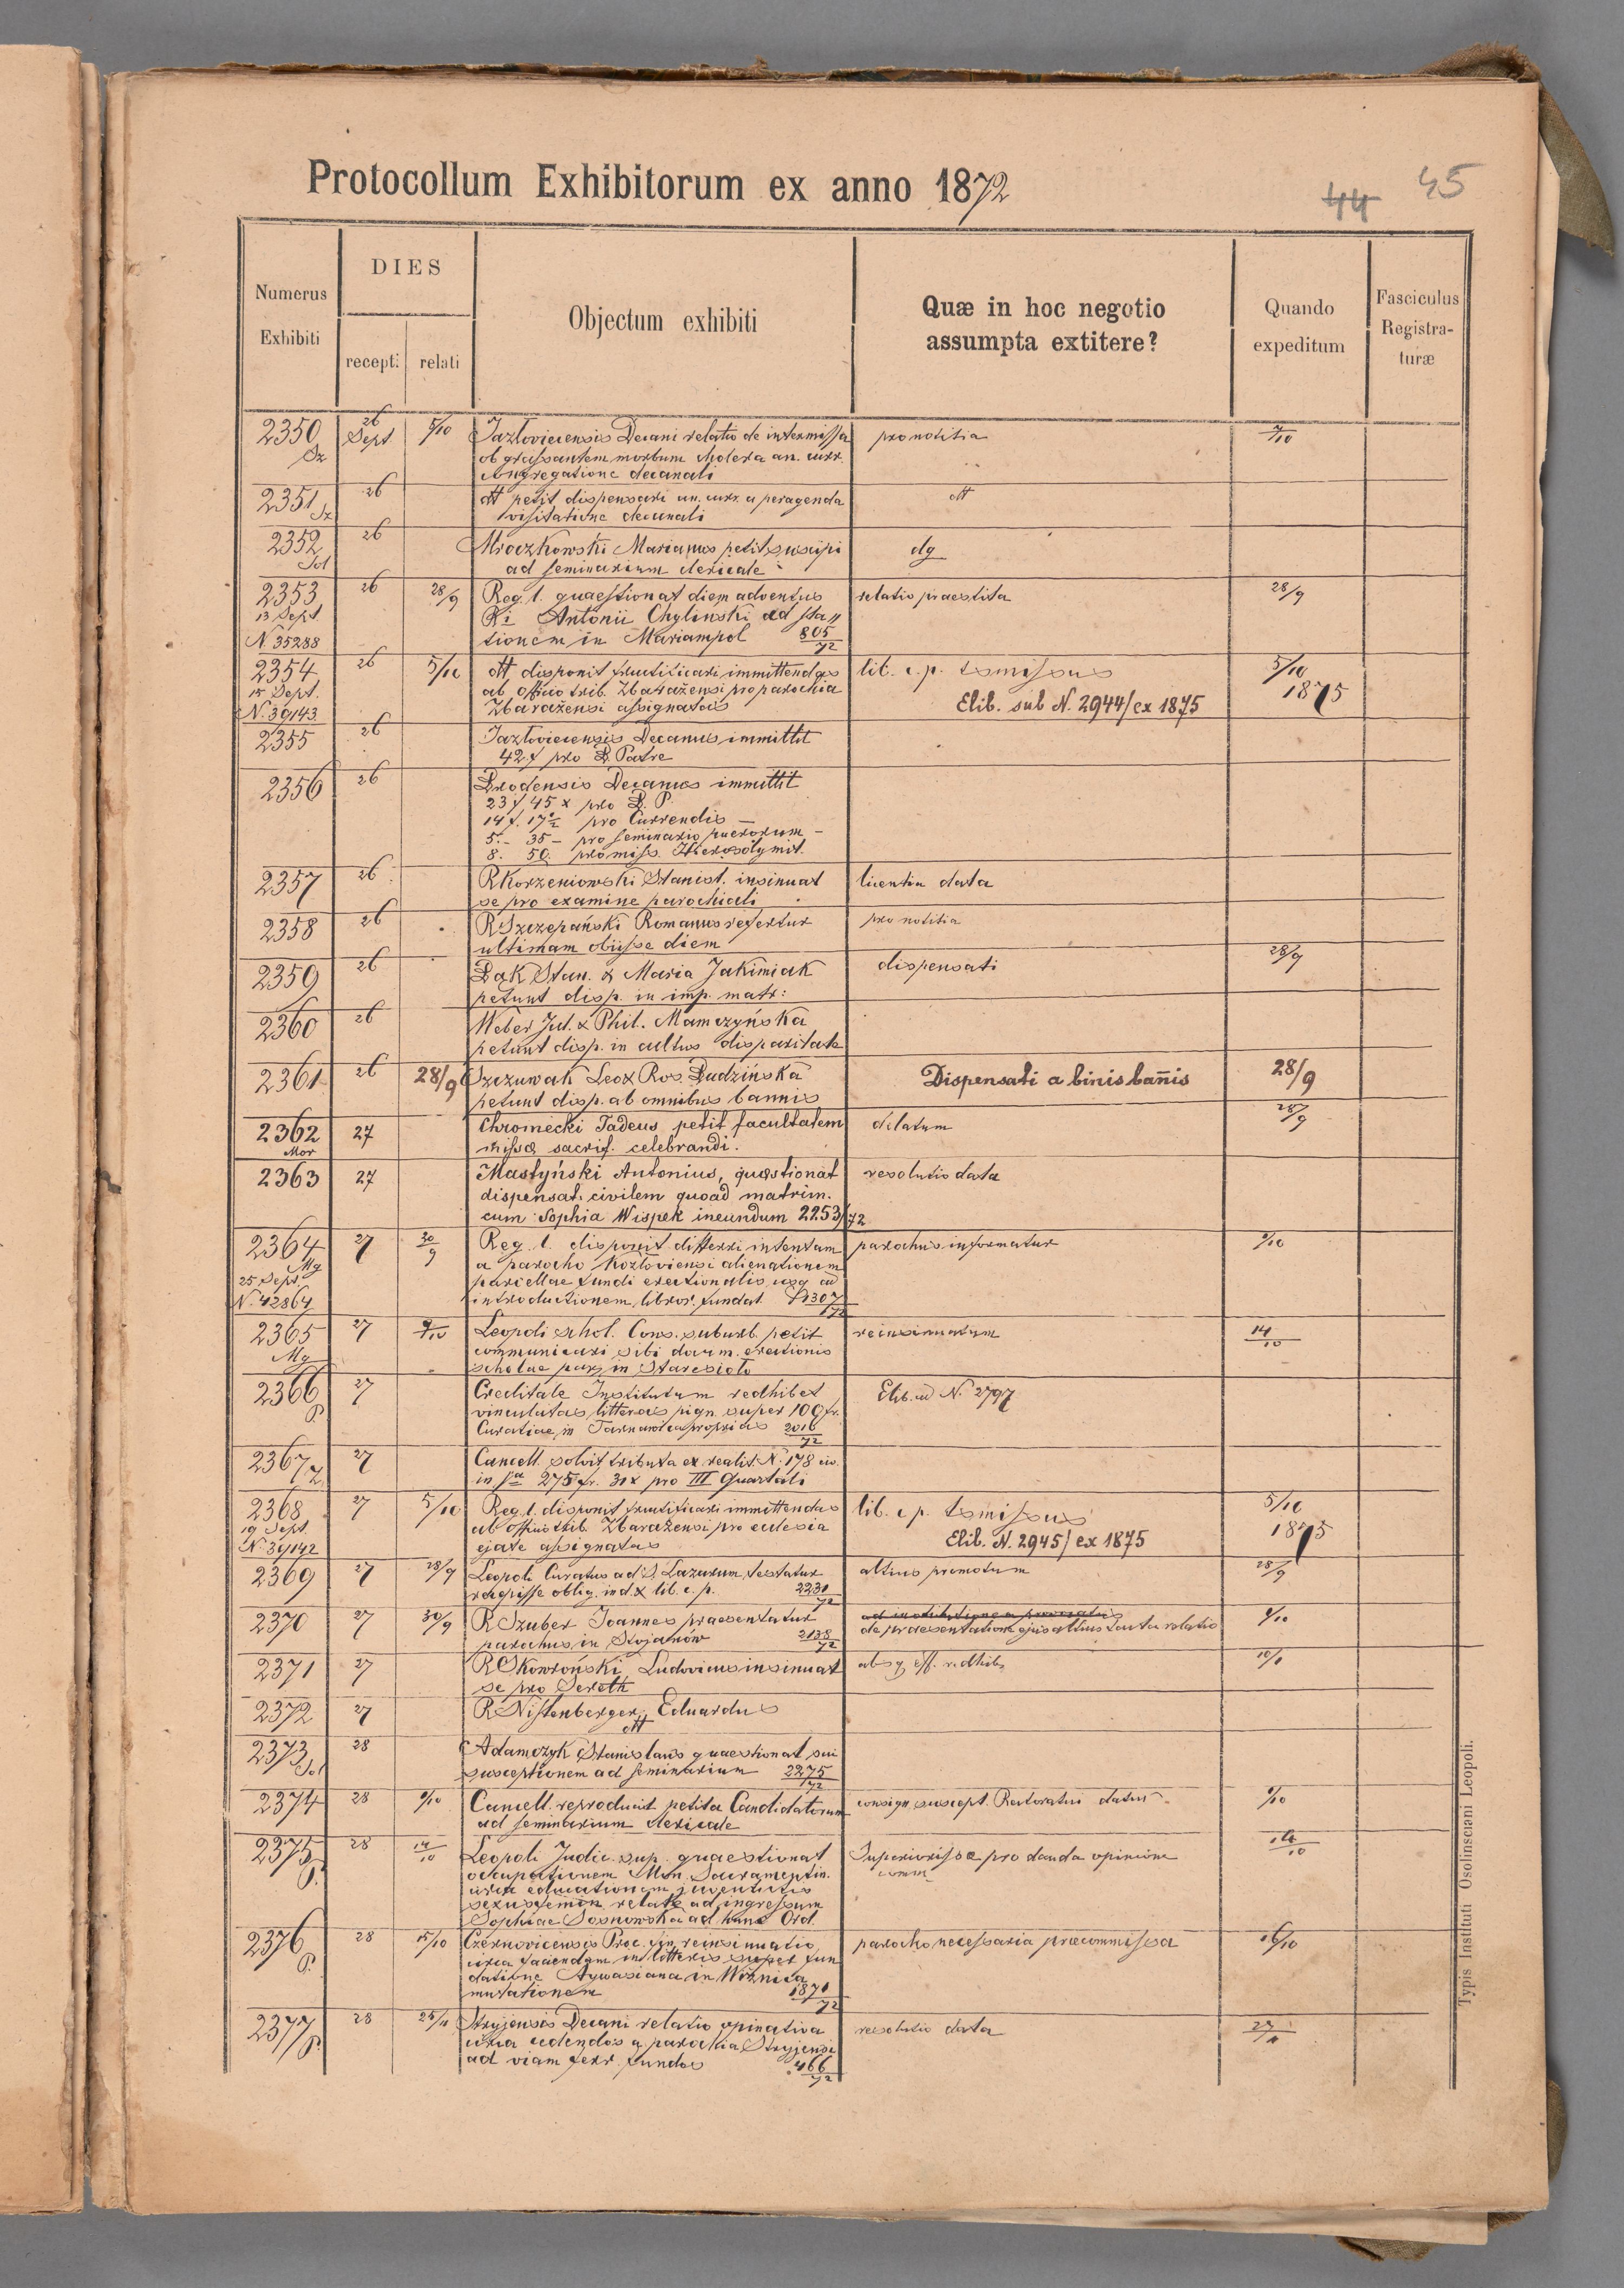 Protocollum Exhibitorum ex anno 1872
44 45
Numerus Exhibiti
DIES
recepti relati
Objectum exhibiti
Quæ in hoc negotio assumpta extitere?
Quando expeditum
Fasciculus Registra-turæ
2350 26 Sept 5/10 Jazłoviecensis Decani relatio de intermissa pro notitia 7/10
ob grassantem morbum cholera an. curr.
congregatione decanali
2351 26 dtt petit dispensari an. curr. a peragenda dtt
visitatione decanali
2352 26 Mroczkowski Marianus petit suscipi dg
ad seminarium clericale
2353 26 28/9 Reg. l. quaestionat diem adventus relatio praestita 28/9
13 Sept Ri Antonii Chylinski ad sta//
N. 35288 tionem in Mariampol 805/72
2354 26 5/10 dtt disponit fructificari immittendas lib. c.p. tsmissus 5/10
15 Sept. ab officio trib. Zbaraźensi pro parochia 1875
N. 39143 Zbaraźensi assignatas Elib. sub N. 2944/ex 1875
2355 26 Jazłoviecensis Decanus immittit
42 f pro S. Patre
2356 26 Brodensis Decanus immittit
23 f 45 x pro S. P.
14 f. 17 1/2 pro Currendis –
5.– 35 – pro seminario puerorum –
8. 50. pro miss. Hierosolymit.
2357 26 R Korzeniowski Stanisl. insinuat licentia data
se pro examine parochiali
2358 26 R Szczepański Romanus refertur pro notitia
ultimam obiisse diem
2359 26 Bąk Stan. & Maria Jakimiak dispensati 28/9
petunt disp. in imp. matr:
2360 26 Weber Jul. & Phil. Mamczyńska
petunt disp. in cultus disparitate
2361 26 28/9 Szczuwak Leo & Ros. Dudzińska Dispensati a binis bañis 28/9
petunt disp. ab omnibus bannis
2362 27 Chromecki Tadeus petit facultatem dilatum 28/9
Mor missæ sacrif. celebrandi.
2363 27 Mastyński Antonius, quæstionat resolutio data
dispensat. civilem quoad matrim.
cum Sophia Wispek ineundum 2253/72
2364 27 30/9 Reg. l. disponit differri intentam parochus informatur 9/10
Mg a parocho Kozłoviensi alienationem
25 Sept. parcellae fundi erectionalis usq ad
N. 42864 introductionem libror. fundat. 1307/72
2365 27 9/10 Leopoli schol. Cons. suburb. petit reinsinuatum 14/10
Mg communicari sibi docum. erectionis
scholae par. in Staresioło
2366 27 Creditale Institutum redhibet Elib. ad N. 2797
P vinculatas litteras pign. super 100 fr.
Curatiae in Tarnawica proprias 2016/72
2367 27 Cancell. solvit tributa ex realit. N. 178 civ.
in sa 275 fr. 31 x pro III Quartali
2368 27 5/10 Reg. l. disponit fructificari immittendas lib. c p. tsmissus 5/10
19 Sept. ab officio trib. Zbaraźensi pro eclesia 1875
N. 39142 ejate assignatas Elib. N. 2945/ex 1875
2369 27 28/9 Leopoli Curatus ad S. Lazarum, testatur altius promotum 28/9
recepisse oblig. ind. & lib. c. p. 2231/72
2370 27 30/9 R Szuber Joannes praesentatur
parochus in Stojanów 2138/72 de praesentatione ejus altius facta relatio 9/10
2371 27 R Skowroński Ludovicus insinuat absq eff. redhib. 10/1
se pro Sereth
2372 27 R Nistenberger Eduardus
dtt
2373 28 Adamczyk Stanislaus quaestionat sui
susceptionem ad seminarium 2275/72
2374 28 9/10 Cancell. reproducit petita Candidatorum consign. suscept. Rectoratui datur – 9/10
ad seminarium clericale
2375 28 14/10 Leopoli Judic. sup. quaestionat Superiorissæ pro danda opinione 14/10
P. occupationem Mon. Sacramentin. comm.
circa educationem juventutis
sexus femin. relate ad ingressum
Sophiae Sosnowska ad hunc Ord.
2376 28 15/10 Czernovicensis Proc. fin. reinsinuatio parocho necessaria præcommissa 16/10
P. circa faciendam in litteris super fun
datione Aywasiana in Wiżnica
mutationem 1871/72
2377 28 25/11 Stryjensis Decani relatio opinativa resolutio data 27/11
P. circa cedendos a parochia Stryjensi
ad viam ferr. fundos 466/72
Typis Instituti Ossolinsciani Leopoli.